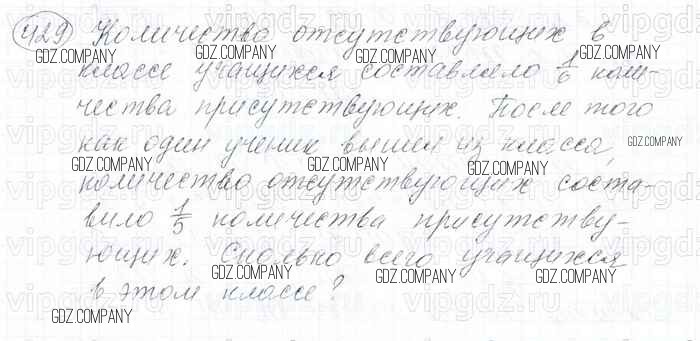 429 Количество отсутствующих в
классе учащихся составляло 1/6 коли-
чества присутствующих. После того
как один ученик вышел из класса,
количество отсутствующих соста-
вило 1/5 количества присутству-
ющих. Сколько всего учащихся
в этом классе?
GDZ.COMPANY
GDZ.COMPANY
GDZ.COMPANY
GDZ.COMPANY
GDZ.COMPANY
GDZ.COMPANY
GDZ.COMPANY
GDZ.COMPANY
GDZ.COMPANY
GDZ.COMPANY
GDZ.COMPANY
GDZ.COMPANY